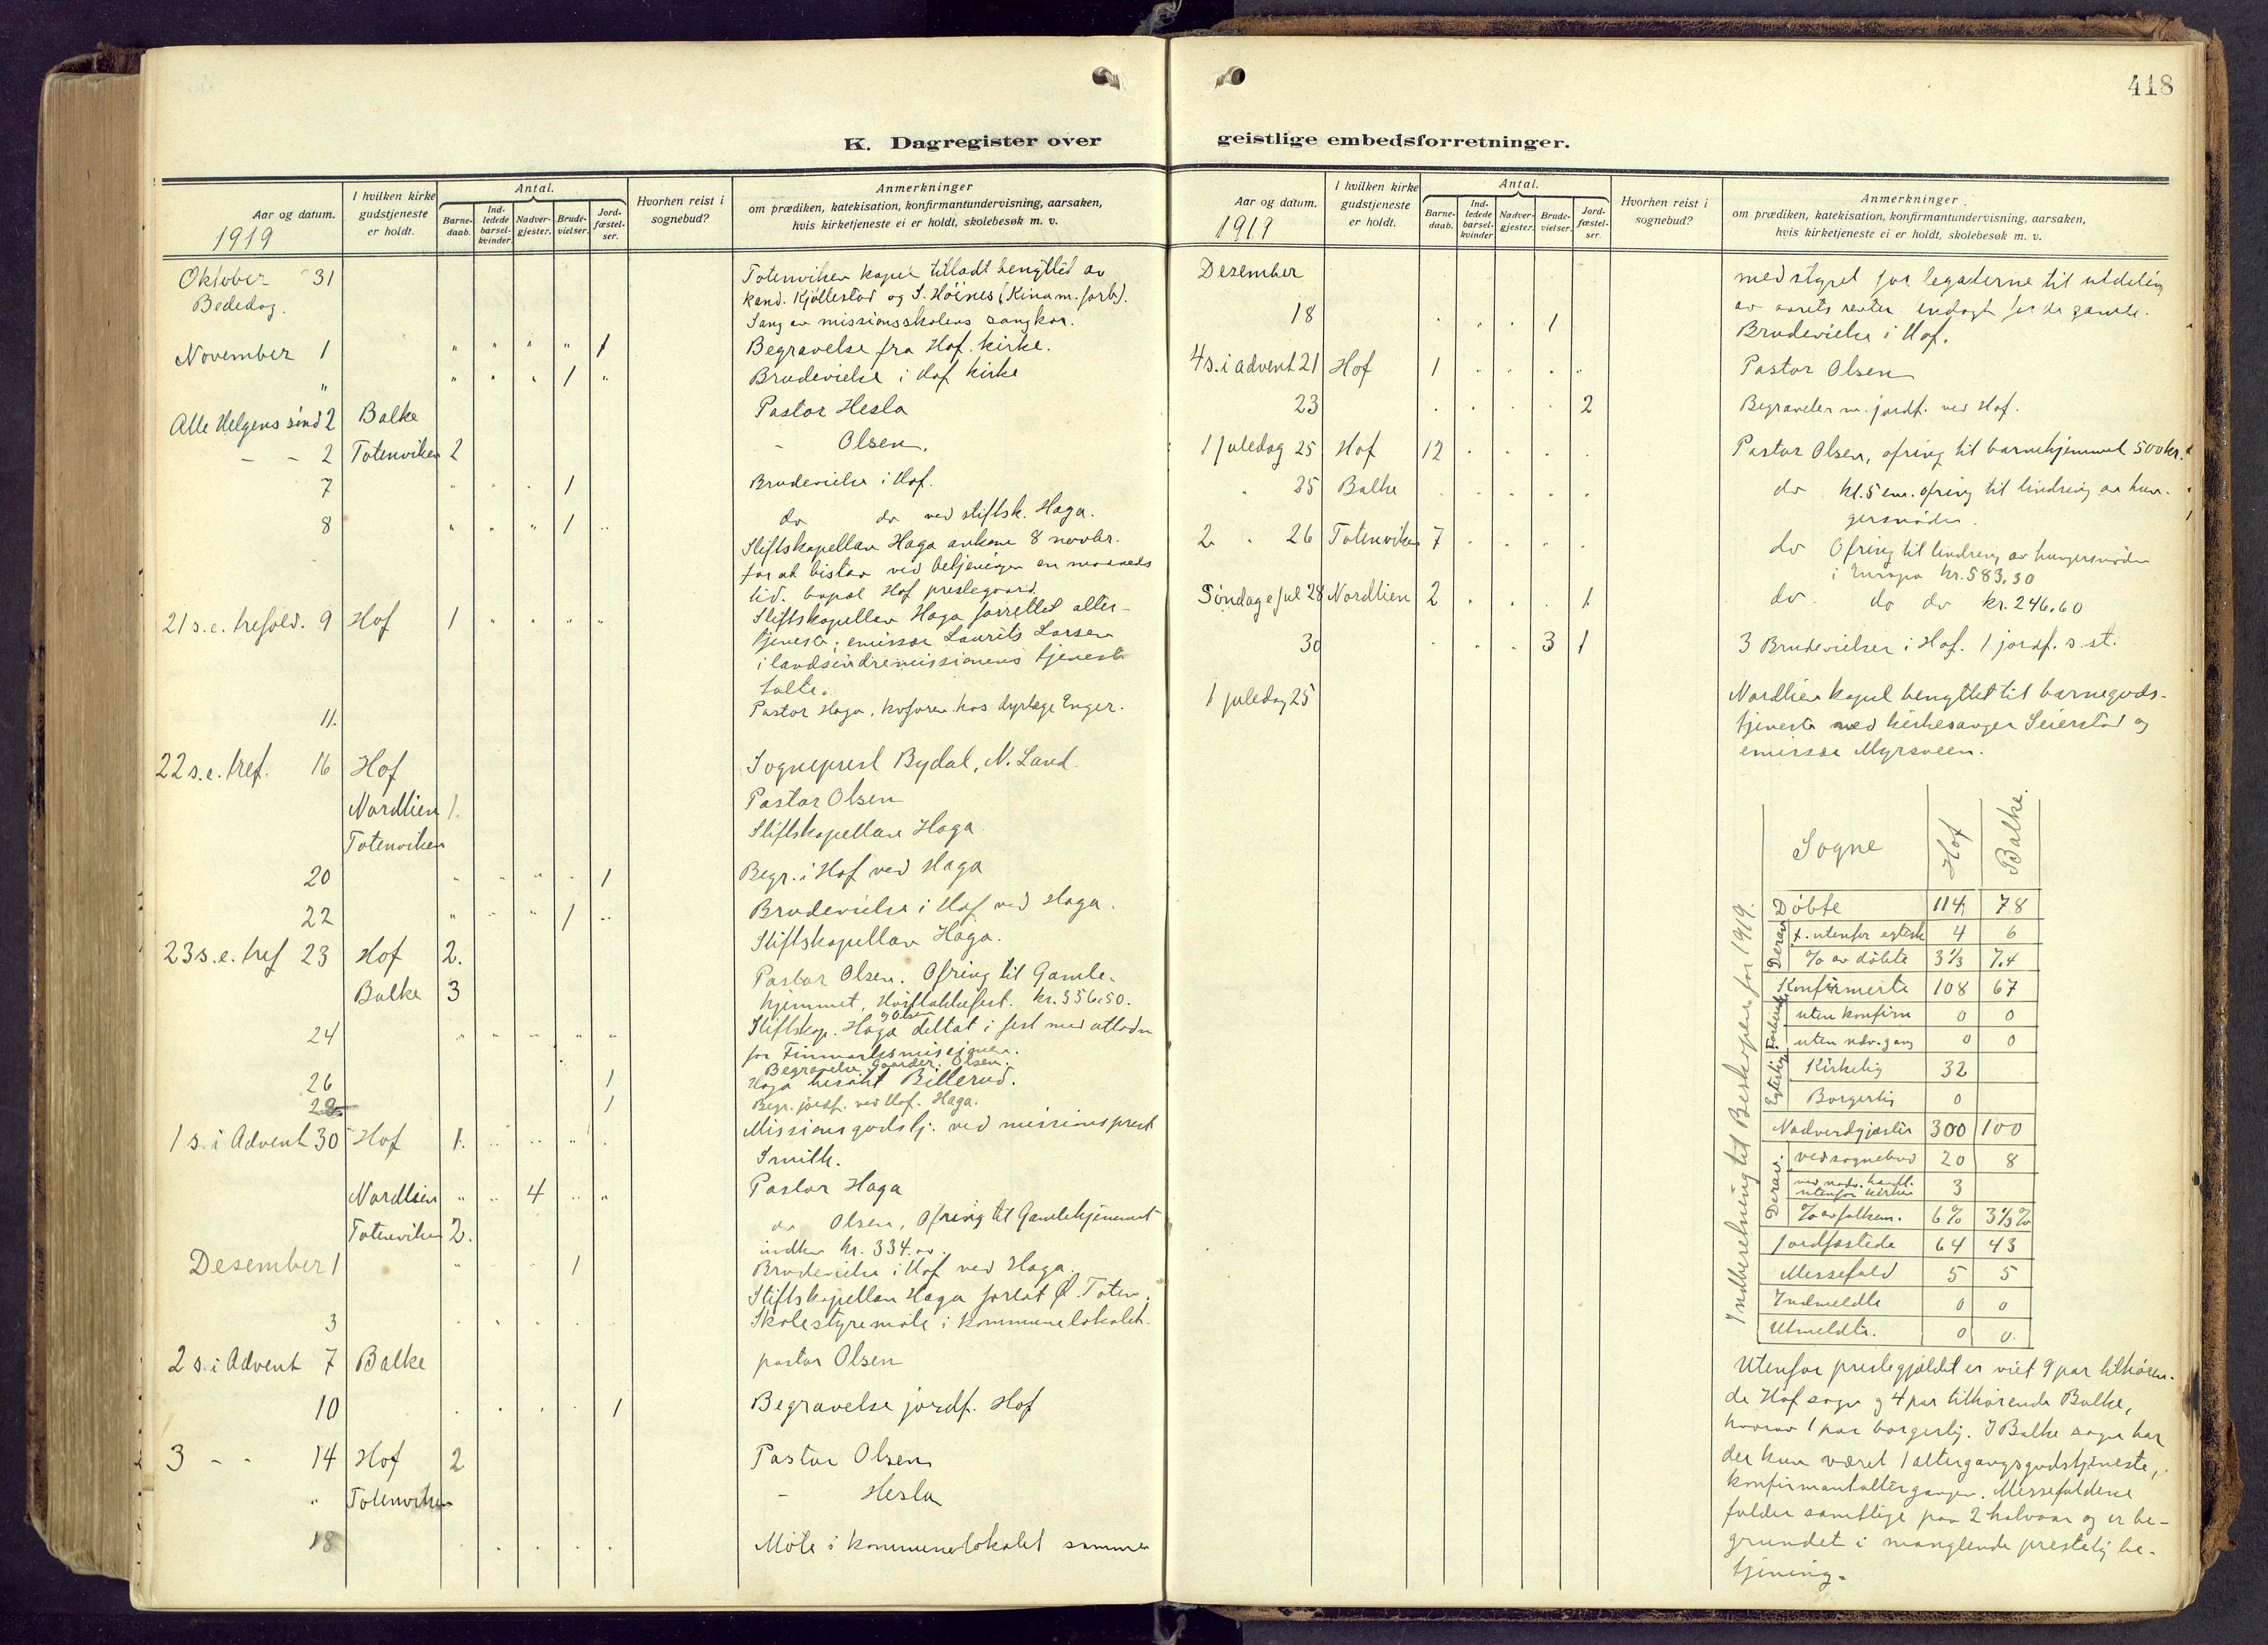 418
K. Dagregister over geistlige embedsforretninger.
Aar og datum.
1919
I hvilken kirke gudstjeneste er holdt.
Antal.
Barne-daab.
Ind-ledede barsel-kvinder.
Nadver-gjester.
Brude-vielser.
Jord-fæstel-ser.
Hvorhen reist i sognebud?
Anmerkninger
om prædiken, katekisation, konfirmantundervisning, aarsaken,
hvis kirketjeneste ei er holdt, skolebesøk m. v.
Oktober 31 Totenviken kapel tilladt benyttet av
Bededag. kand. Kjøllestad og S. Höines (Kinam. forb.).
Sang av missionsskolens sangkor.
November 1 " " " " 1 Begravelse fra Hof kirke.
" " " " 1 " Brudevielse i Hof kirke
Alle Helgens sönd 2 Balke Pastor Hesla
- - 2 Totenviken 2 - Olsen.
7 " " " 1 Brudevielse i Hof.
8 " " " 1 " do do ved stiftsk. Haga.
Stiftskapellan Haga ankom 8 novbr.
for at bistaa ved betjeningen en maaneds
tid. bopæl Hof prestegaard.
21 s. e. trefold. 9 Hof 1 " " " " Stiftskapellan Haga forrettet alter-
tjeneste; emissær Laurits Larsen
i landsindremissionens tjeneste
talte.
11. Pastor Haga, hos dyrlæge Enger.
22 s. e. tref. 16 Hof Sogneprest Bydal, N. Land
Nordlien 1. Pastor Olsen
Totenviken Stiftskapellan Haga.
20 " " " " 1 Begr. i Hof ved Haga
22 " " " 1 " Brudevielse i Hof ved Haga.
23 s. e. tref 23 Hof 2. Stiftskapellan Haga.
Balke 3 Pastor Olsen. Ofring til Gamle-
hjemmet, Hösttakkefest. kr. 356.50.
24 " " " " " Stiftskap. Haga og Olsen deltat i fest med utlodn
for Finmarksmisjonen.
Begravelse Gaarder. Olsen.
26 1 Haga besökt Billerud.
29 1 Begr. jordf. ved Hof. Haga.
1 s. i Advent 30 Hof 1. " " " " Missionsgudstj. ved missionsprest
Smith.
Nordlien " " 4 " " Pastor Haga
Totenviken 2. do Olsen, Ofring til Gamlehjemmet
indkom kr. 334.
Desember 1 " " " 1 Brudevielse i Hof ved Haga.
Stiftskapellan Haga forlot Ø. Toten.
3 Skolestyremöte i kommunelokalet.
2 s. i Advent 7 Balke pastor Olsen
10 . . . . 1 Begravelse jordf. Hof
3 - - 14 Hof 2 Pastor Olsen
" Totenviken - Hesla
18 . . . . . Möte i kommunelokalet sammen
Aar og datum.
1919
I hvilken kirke gudstjeneste er holdt.
Antal.
Barne-daab.
Ind-ledede barsel-kvinder
Nadver-gjester.
Brude-vielser.
Jord-fæstel-ser.
Hvorhen reist i sognebud?
Anmerkninger
om prædiken, katekisation, konfirmantundervisning, aarsaken,
hvis kirketjeneste ei er holdt, skolebesøk m. v.
Desember med styret for legaterne til utdeling
av aarets renter for de gamle.
18 . . . 1 Brudevielse i Hof.
4 s. i advent 21 Hof 1 . . . . Pastor Olsen
23 . . . . 2 Begravelser m. jordf. ved Hof.
1 juledag 25 Hof 12 . . . . Pastor Olsen, ofring til barnehjemmet 500 kr.
" 25 Balke . . . . . do kl. 5 em. ofring til lindring av hun-
gersnöden.
2 " 26 Totenviken 7 . . . . do Ofring til lindring av hungersnöden
i Europa kr. 583,30
Söndag e Jul 28 Nordlien 2 . . . 1 do. do do kr. 246,60
30 . . . 3 1 3 Brudevielser i Hof. 1 jordf. s. st.
1 juledag 25 Nordlien kapel benyttet til barneguds-
tjeneste ved kirkesanger Seierstad og
emissær Myrsveen.
Indberetning til Biskopen for 1919.
Sogne Hof Balke.
Döbte 114 78
Derav f. utenfor egtesk 4 6
% av döbte 3 1/3 7,4
Konfirmerte 108 67
uten konfirm 0 0
uten nadv. gang 0 0
Kirkelig 32
Borgerlig 0
Nadverdgjæster 300 100
Derav. ved sognebud 20 8
ved nadv. handl. utenfor kirken 3
% av folkem. 6% 3 1/3 %
Jordfæstede 64 43
Messefald 5 5
Indmeldte 0 0
Utmeldte. 0 0.
Utenfor prestegjeldet er viet 9 par tilhören-
de Hof sogn og 4 par tilhörende Balke,
hvorav 1 par borgerlig. I Balke sogn har
der kun været 1 altergangsgudstjeneste,
konfirmantaltergangen. Messefaldene
falder samtlige paa 2 halvaar og er be-
grundet i manglende prestelig be-
tjening.